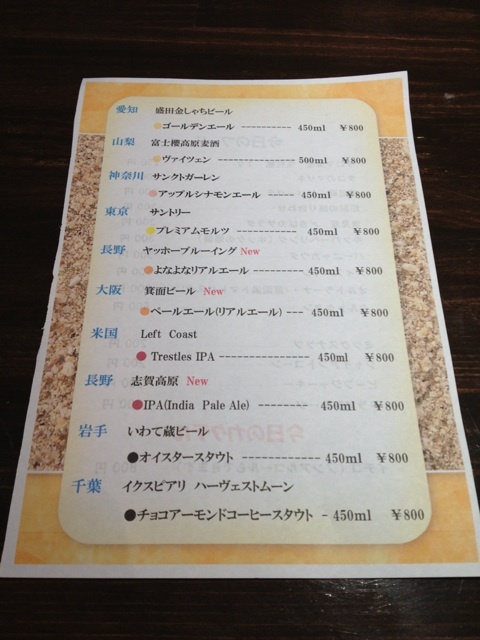 愛知 盛田金しゃちビール
●ゴールデンエール ---------- 450ml ￥800
山梨 富士櫻高原麦酒
●ヴァイツェン ---------- 500ml ￥800
神奈川 サンクトガーレン
●アップルシナモンエール ------- 450ml ￥800
東京 サントリー
●プレミアムモルツ ------------ 450ml ￥800
長野 ヤッホーブルーイング New
●よなよなリアルエール -------- 450ml ￥800
大阪 箕面ビール New
●ペールエール(リアルエール) --- 450ml ￥800
米国 Left Coast
●Trestles IPA ------------- 450ml ￥800
長野 志賀高原 New
●IPA(India Pale Ale) --------- 450ml ￥800
岩手 いわて蔵ビール
●オイスタースタウト ----------- 450ml ￥800
千葉 イクスピアリ ハーヴェストムーン
●チョコアーモンドコーヒースタウト - 450ml ￥800